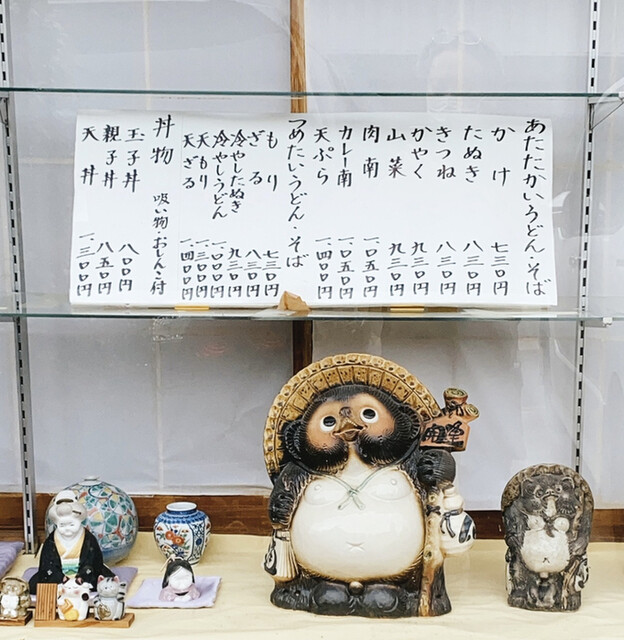 あたたかいうどん・そば
かけ 七三〇円
たぬき 八三〇円
きつね 八三〇円
かやく 九三〇円
山菜 九三〇円
肉南 一、〇五〇円
カレー南 一、〇五〇円
天ぷら 一、四〇〇円
つめたいうどん・そば
もり 七三〇円
ざる 八三〇円
冷やしたぬき 九三〇円
冷やしうどん 一、〇〇〇円
天もり 一、三〇〇円
天ざる 一、四〇〇円
丼物 吸い物・おしんこ付
玉子丼 八〇〇円
親子丼 八五〇円
天丼 一、三〇〇円